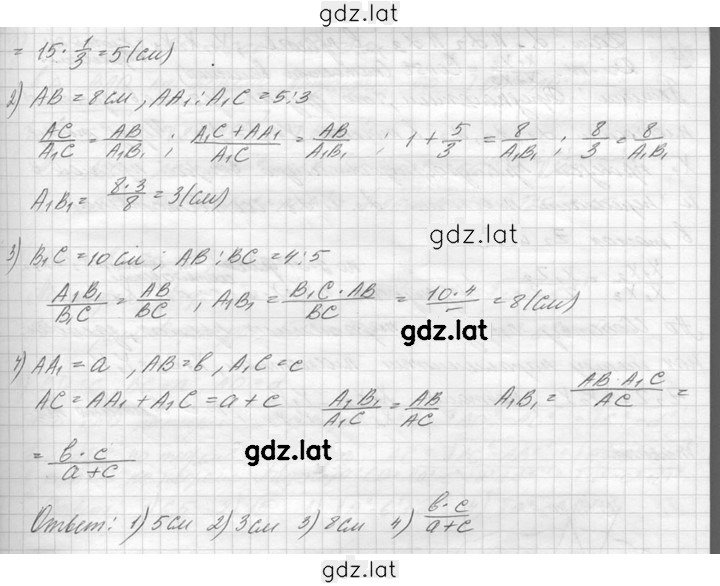 gdz.lat
= 15 · 1/3 = 5 (см)
2) AB = 8 см, AA₁ : A₁C = 5 : 3
AC/A₁C = AB/A₁B₁ ; (A₁C + AA₁)/A₁C = AB/A₁B₁ ; 1 + 5/3 = 8/A₁B₁ ; 8/3 = 8/A₁B₁
A₁B₁ = (8·3)/8 = 3 (см)
gdz.lat
3) B₁C = 10 см ; AB : BC = 4 : 5
A₁B₁/B₁C = AB/BC , A₁B₁ = (B₁C · AB)/BC = (10·4)/ = 8 (см)
gdz.lat
4) AA₁ = a , AB = b , A₁C = c
AC = AA₁ + A₁C = a + c A₁B₁/A₁C = AB/AC A₁B₁ = (AB · A₁C)/AC =
= (b · c)/(a + c)
gdz.lat
Ответ: 1) 5 см 2) 3 см 3) 8 см 4) (b · c)/(a + c)
gdz.lat